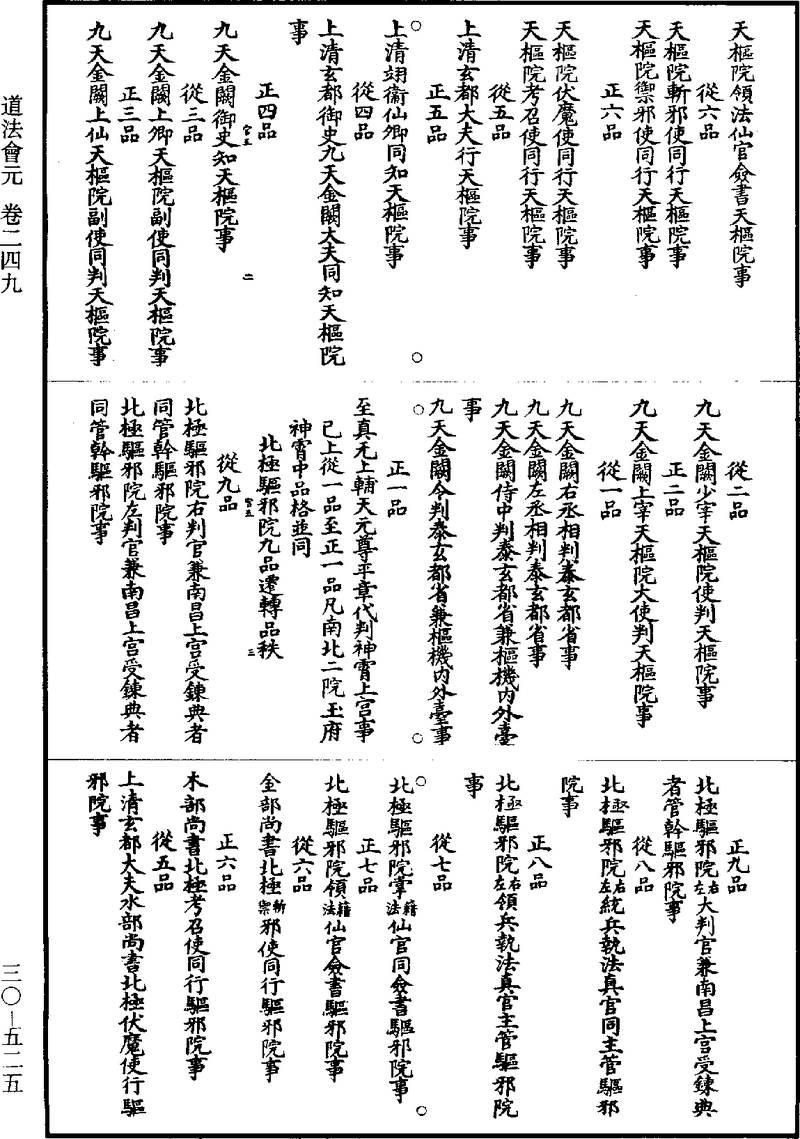 道法會元　卷二四九
三〇—五二五
天樞院領法仙官僉書天樞院事
從六品
天樞院斬邪使同行天樞院事
天樞院禦邪使同行天樞院事
正六品
天樞院伏魔使同行天樞院事
天樞院考召使同行天樞院事
從五品
上清玄都大夫行天樞院事
正五品
上清翊衞仙卿同知天樞院事
從四品
上清玄都御史九天金闕大夫同知天樞院
事
正四品
九天金闕御史知天樞院事
從三品
九天金闕上卿天樞院副使同判天樞院事
正三品
九天金闕上仙天樞院副使同判天樞院事
從二品
九天金闕少宰天樞院使判天樞院事
正二品
九天金闕上宰天樞院大使判天樞院事
從一品
九天金闕右丞相判泰玄都省事
九天金闕左丞相判泰玄都省事
九天金闕侍中判泰玄都省兼樞機內外臺
事
九天金闕令判泰玄都省兼樞機內外臺事
正一品
至真无上輔天元尊平章代判神霄上宮事
已上從一品至正一品凡南北二院玉府
神霄中品格並同
北極驅邪院九品遷轉品秩
從九品
北極驅邪院右判官兼南昌上宮受鍊典者
同管幹驅邪院事
北極驅邪院左判官兼南昌上宮受鍊典者
同管幹驅邪院事
正九品
北極驅邪院右左大判官兼南昌上宮受鍊典
者管幹驅邪院事
從八品
北極驅邪院右左統兵執法真官同主管驅邪
院事
正八品
北極驅邪院右左領兵執法真官主管驅邪院
事
從七品
北極驅邪院掌籍法仙官同僉書驅邪院事
正七品
北極驅邪院領籍法仙官僉書驅邪院事
從六品
金部尚書北極斬禦邪使同行驅邪院事
正六品
木部尚書北極考召使同行驅邪院事
從五品
上清玄都大夫水部尚書北極伏魔使行驅
邪院事